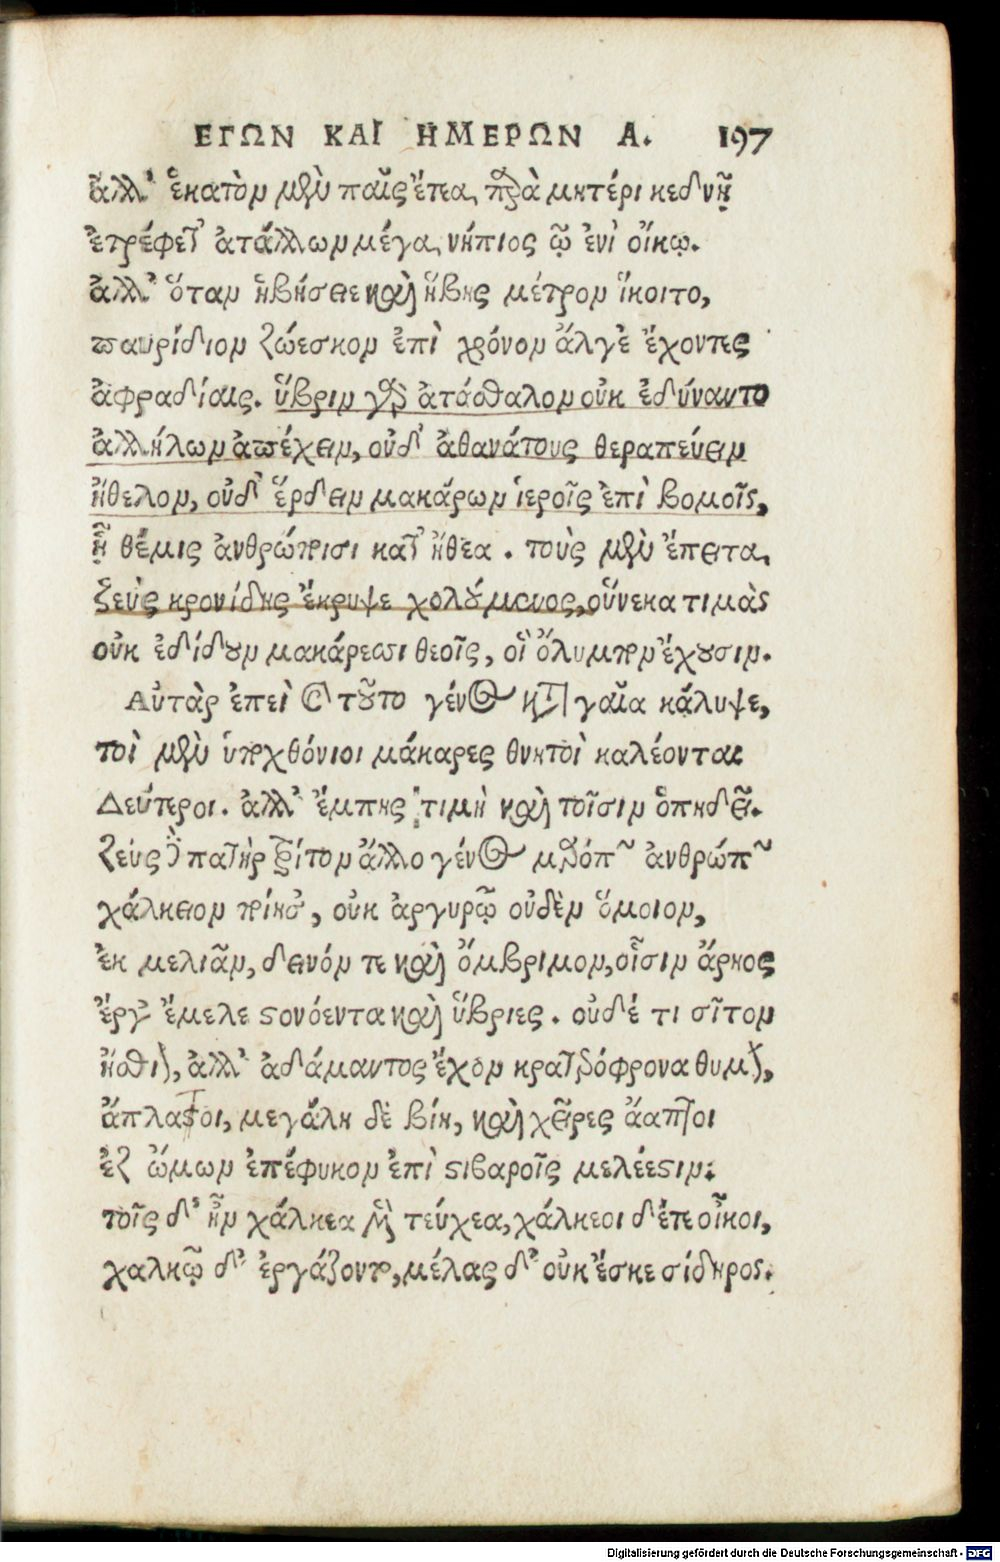 ΕΓΩΝ ΚΑΙ ΗΜΕΡΩΝ Α. 197
ἀλλ' ἑκατὸν μὲν παῖς ἔτεα, παρὰ μητέρι κεδνῇ
ἐτρέφετ' ἀτάλλων μέγα, νήπιος ᾧ ἐνὶ οἴκῳ.
ἀλλ' ὅταν ἡβήσειε καὶ ἥβης μέτρον ἵκοιτο,
παυρίδιον ζώεσκον ἐπὶ χρόνον ἄλγε' ἔχοντες
ἀφραδίαις. ὕβριν γὰρ ἀτάσθαλον οὐκ ἐδύναντο
ἀλλήλων ἀπέχειν, οὐδ' ἀθανάτους θεραπεύειν
ἤθελον, οὐδ' ἕρδειν μακάρων ἱεροῖς ἐπὶ βομοῖς,
ᾗ θέμις ἀνθρώποισι κατ' ἤθεα. τοὺς μὲν ἔπειτα,
ζεὺς κρονίδης ἔκρυψε χολούμενος, οὕνεκα τιμὰς
οὐκ ἐδίδουν μακάρεσσι θεοῖς, οἳ ὄλυμπον ἔχουσιν.
Αὐτὰρ ἐπεὶ καὶ τοῦτο γένος κατὰ γαῖα κάλυψε,
τοὶ μὲν ὑποχθόνιοι μάκαρες θνητοὶ καλέονται
Δεύτεροι. ἀλλ' ἔμπης τιμὴ καὶ τοῖσιν ὀπηδεῖ.
ζεὺς δὲ πατὴρ τρίτον ἄλλο γένος μερόπων ἀνθρώπων
χάλκειον ποίησ', οὐκ ἀργυρῷ οὐδὲν ὅμοιον,
ἐκ μελιᾶν, δεινόν τε καὶ ὄμβριμον, οἷσιν ἄρηος
ἔργ' ἔμελε στονόεντα καὶ ὕβριες. οὐδέ τι σῖτον
ἤσθιον, ἀλλ' ἀδάμαντος ἔχον κρατερόφρονα θυμόν,
ἄπλαστοι, μεγάλη δὲ βίη, καὶ χεῖρες ἄαπτοι
ἐξ ὤμων ἐπέφυκον ἐπὶ στιβαροῖς μελέεσιν.
τοῖς δ' ἦν χάλκεα μὲν τεύχεα, χάλκεοι δέ τε οἶκοι,
χαλκῷ δ' ἐργάζοντο, μέλας δ' οὐκ ἔσκε σίδηρος.
Digitalisierung gefördert durch die Deutsche Forschungsgemeinschaft - DFG